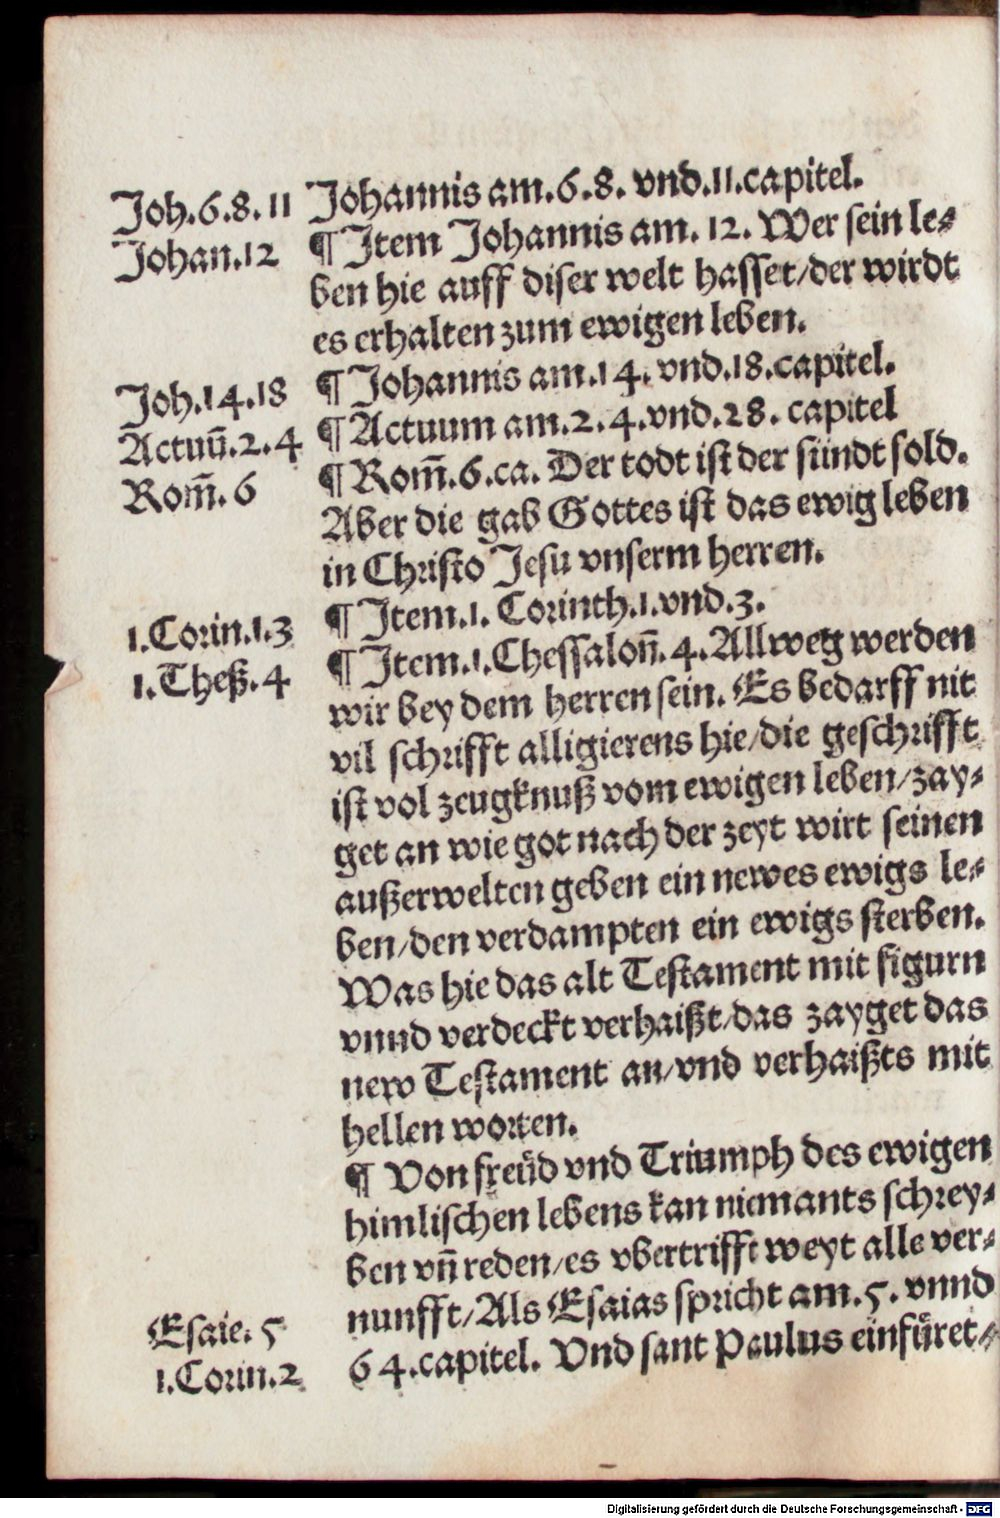 Joh.6.8.11 Johannis am.6.8. vnd.11.capitel.
Johan.12 ¶ Item Johannis am. 12. Wer sein le⸗
ben hie auff diser welt hasset/der wirdt
es erhalten zum ewigen leben.
Joh.14.18 ¶ Johannis am.14. vnd.18.capitel.
Actuū.2.4 ¶ Actuum am.2.4.vnd.28. capitel
Rom̄.6 ¶ Rom̄.6.ca. Der todt ist der sündt sold.
Aber die gab Gottes ist das ewig leben
in Christo Jesu vnserm herren.
1.Corin.1.3 ¶ Item.1. Corinth.1.vnd.3.
1.Theß.4 ¶ Item.1.Chessaloñ.4.Allweg werden
wir bey dem herren sein. Es bedarff nit
vil schrifft alligierens hie/die geschrifft
ist vol zeugknuß vom ewigen leben/zay⸗
get an wie got nach der zeyt wirt seinen
außerwelten geben ein newes ewigs le⸗
ben/den verdampten ein ewigs sterben.
Was hie das alt Testament mit figurn
vnnd verdeckt verhaißt/das zayget das
new Testament an/vnd verhaißts mit
hellen worten.
¶ Von freüd vnd Triumph des ewigen
himlischen lebens kan niemants schrey⸗
ben vñ reden/es vbertrifft weyt alle ver⸗
nunfft/Als Esaias spricht am.5. vnnd
Esaie. 5
64.capitel. Vnd sant Paulus einfüret⸗
1.Corin.2
Digitalisierung gefördert durch die Deutsche Forschungsgemeinschaft - DFG